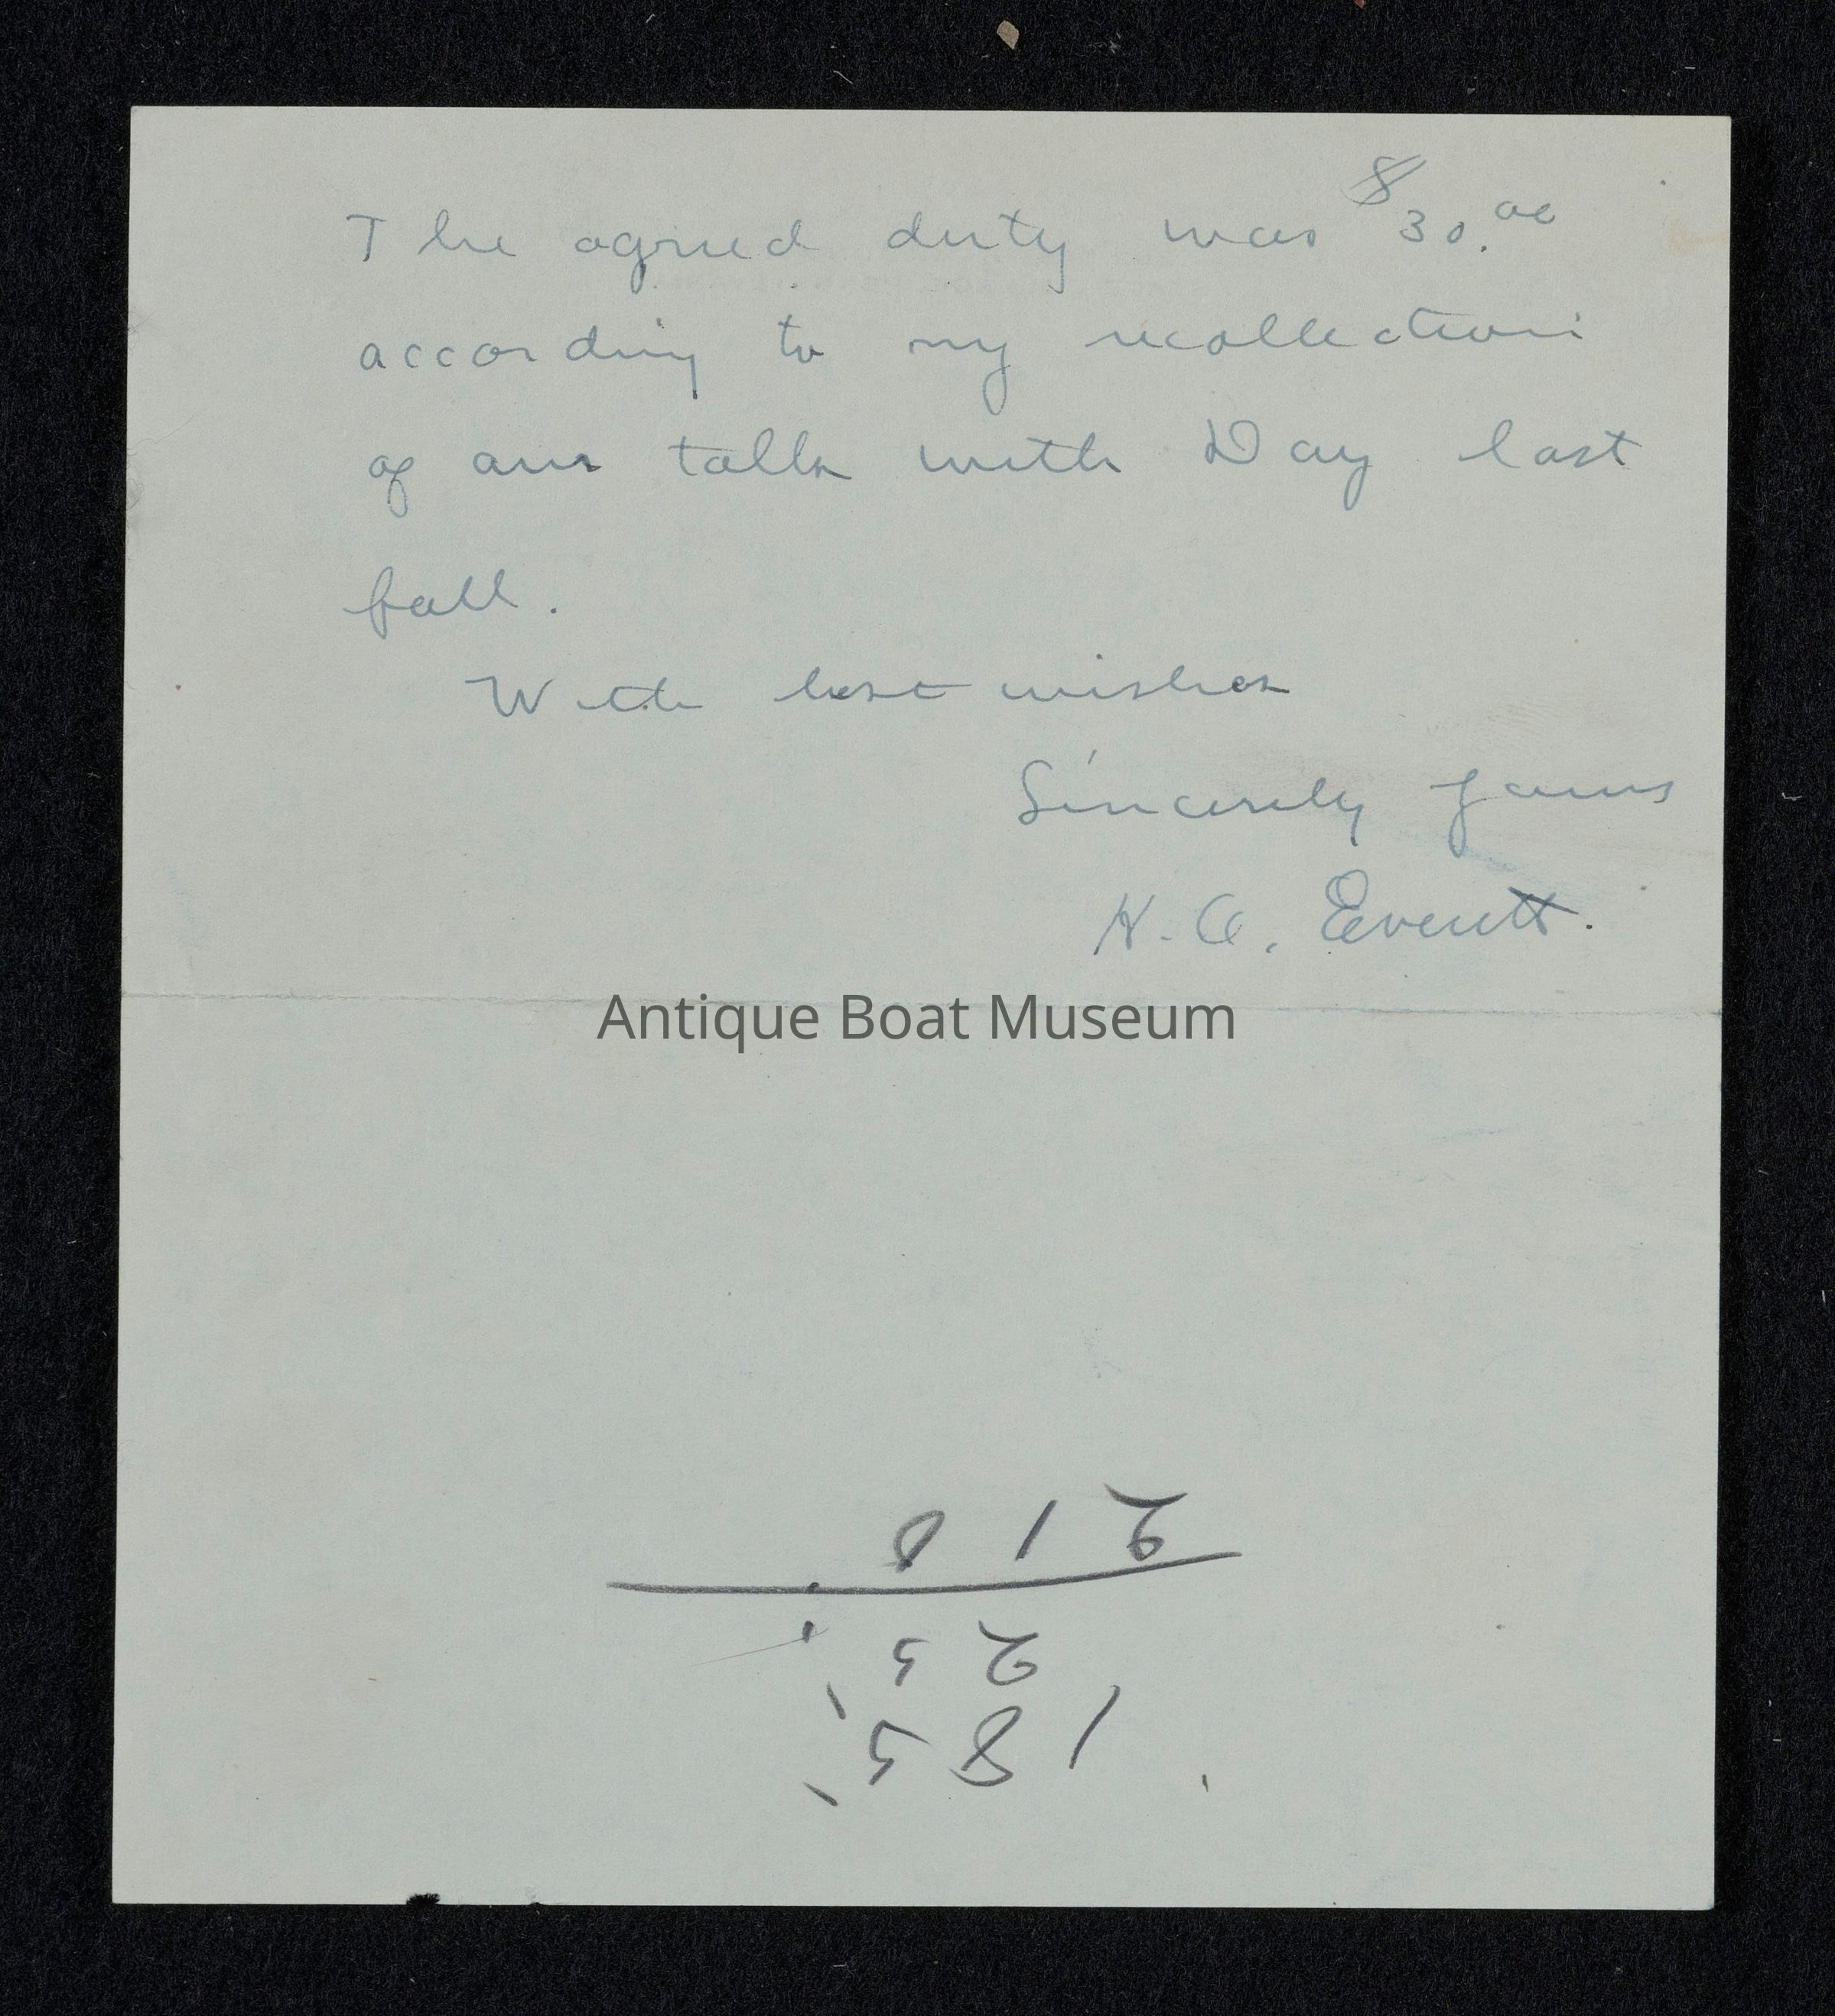 The agreed duty was $30.00
according to my recollection
of our talk with Day last
fall.
With best wishes
Sincerely yours
H. A. Everett.
Antique Boat Museum
185.
25.
210